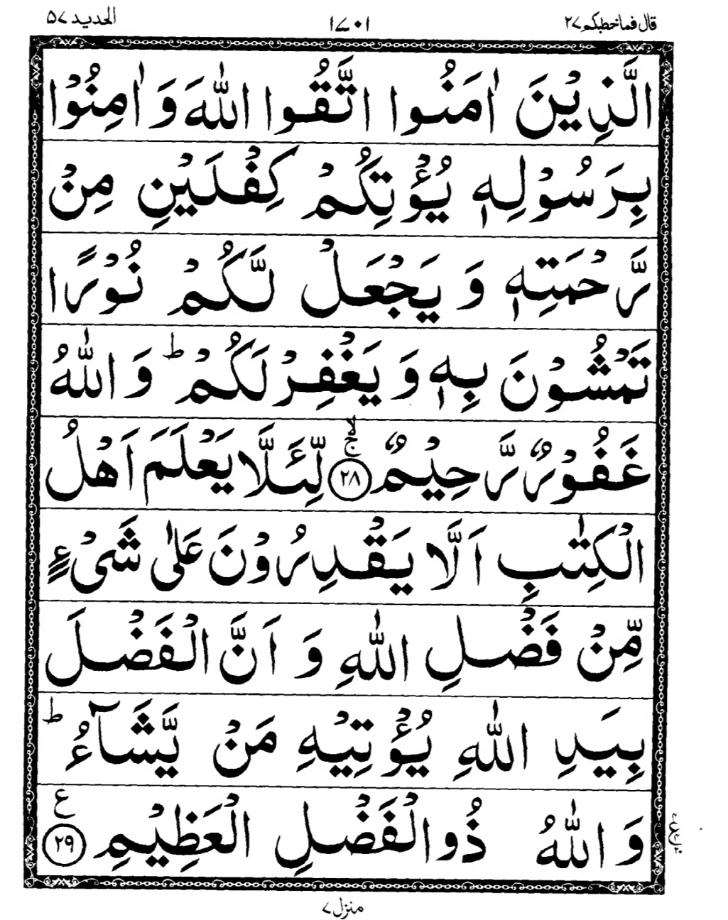 قال فما خطبكم ٢٧ ١٧٠١ الحديد ٥٧
الَّذِيْنَ اٰمَنُوا اتَّقُوا اللّٰهَ وَ اٰمِنُوْا
بِرَسُوْلِهٖ يُؤْتِكُمْ كِفْلَيْنِ مِنْ
رَّحْمَتِهٖ وَ يَجْعَلْ لَّكُمْ نُوْرًا
تَمْشُوْنَ بِهٖ وَ يَغْفِرْ لَكُمْ ؕ وَ اللّٰهُ
غَفُوْرٌ رَّحِيْمٌ ۙۚ ﴿٢٨﴾ لِّئَلَّا يَعْلَمَ اَهْلُ
الْكِتٰبِ اَلَّا يَقْدِرُوْنَ عَلٰى شَىْءٍ
مِّنْ فَضْلِ اللّٰهِ وَ اَنَّ الْفَضْلَ
بِيَدِ اللّٰهِ يُؤْتِيْهِ مَنْ يَّشَآءُ ؕ
وَ اللّٰهُ ذُو الْفَضْلِ الْعَظِيْمِ ﴿٢٩﴾ ع
منزل ٧